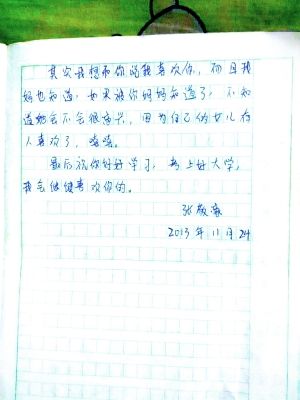 其实我想和你说我喜欢你,而且我
妈也知道,如果被你妈妈知道了,不知
道她会不会很高兴,因为自己的女儿有
人喜欢了,嘻嘻。
最后祝你好好学习,考上好大学,
我会继续喜欢你的。
张敬
2013年11月24